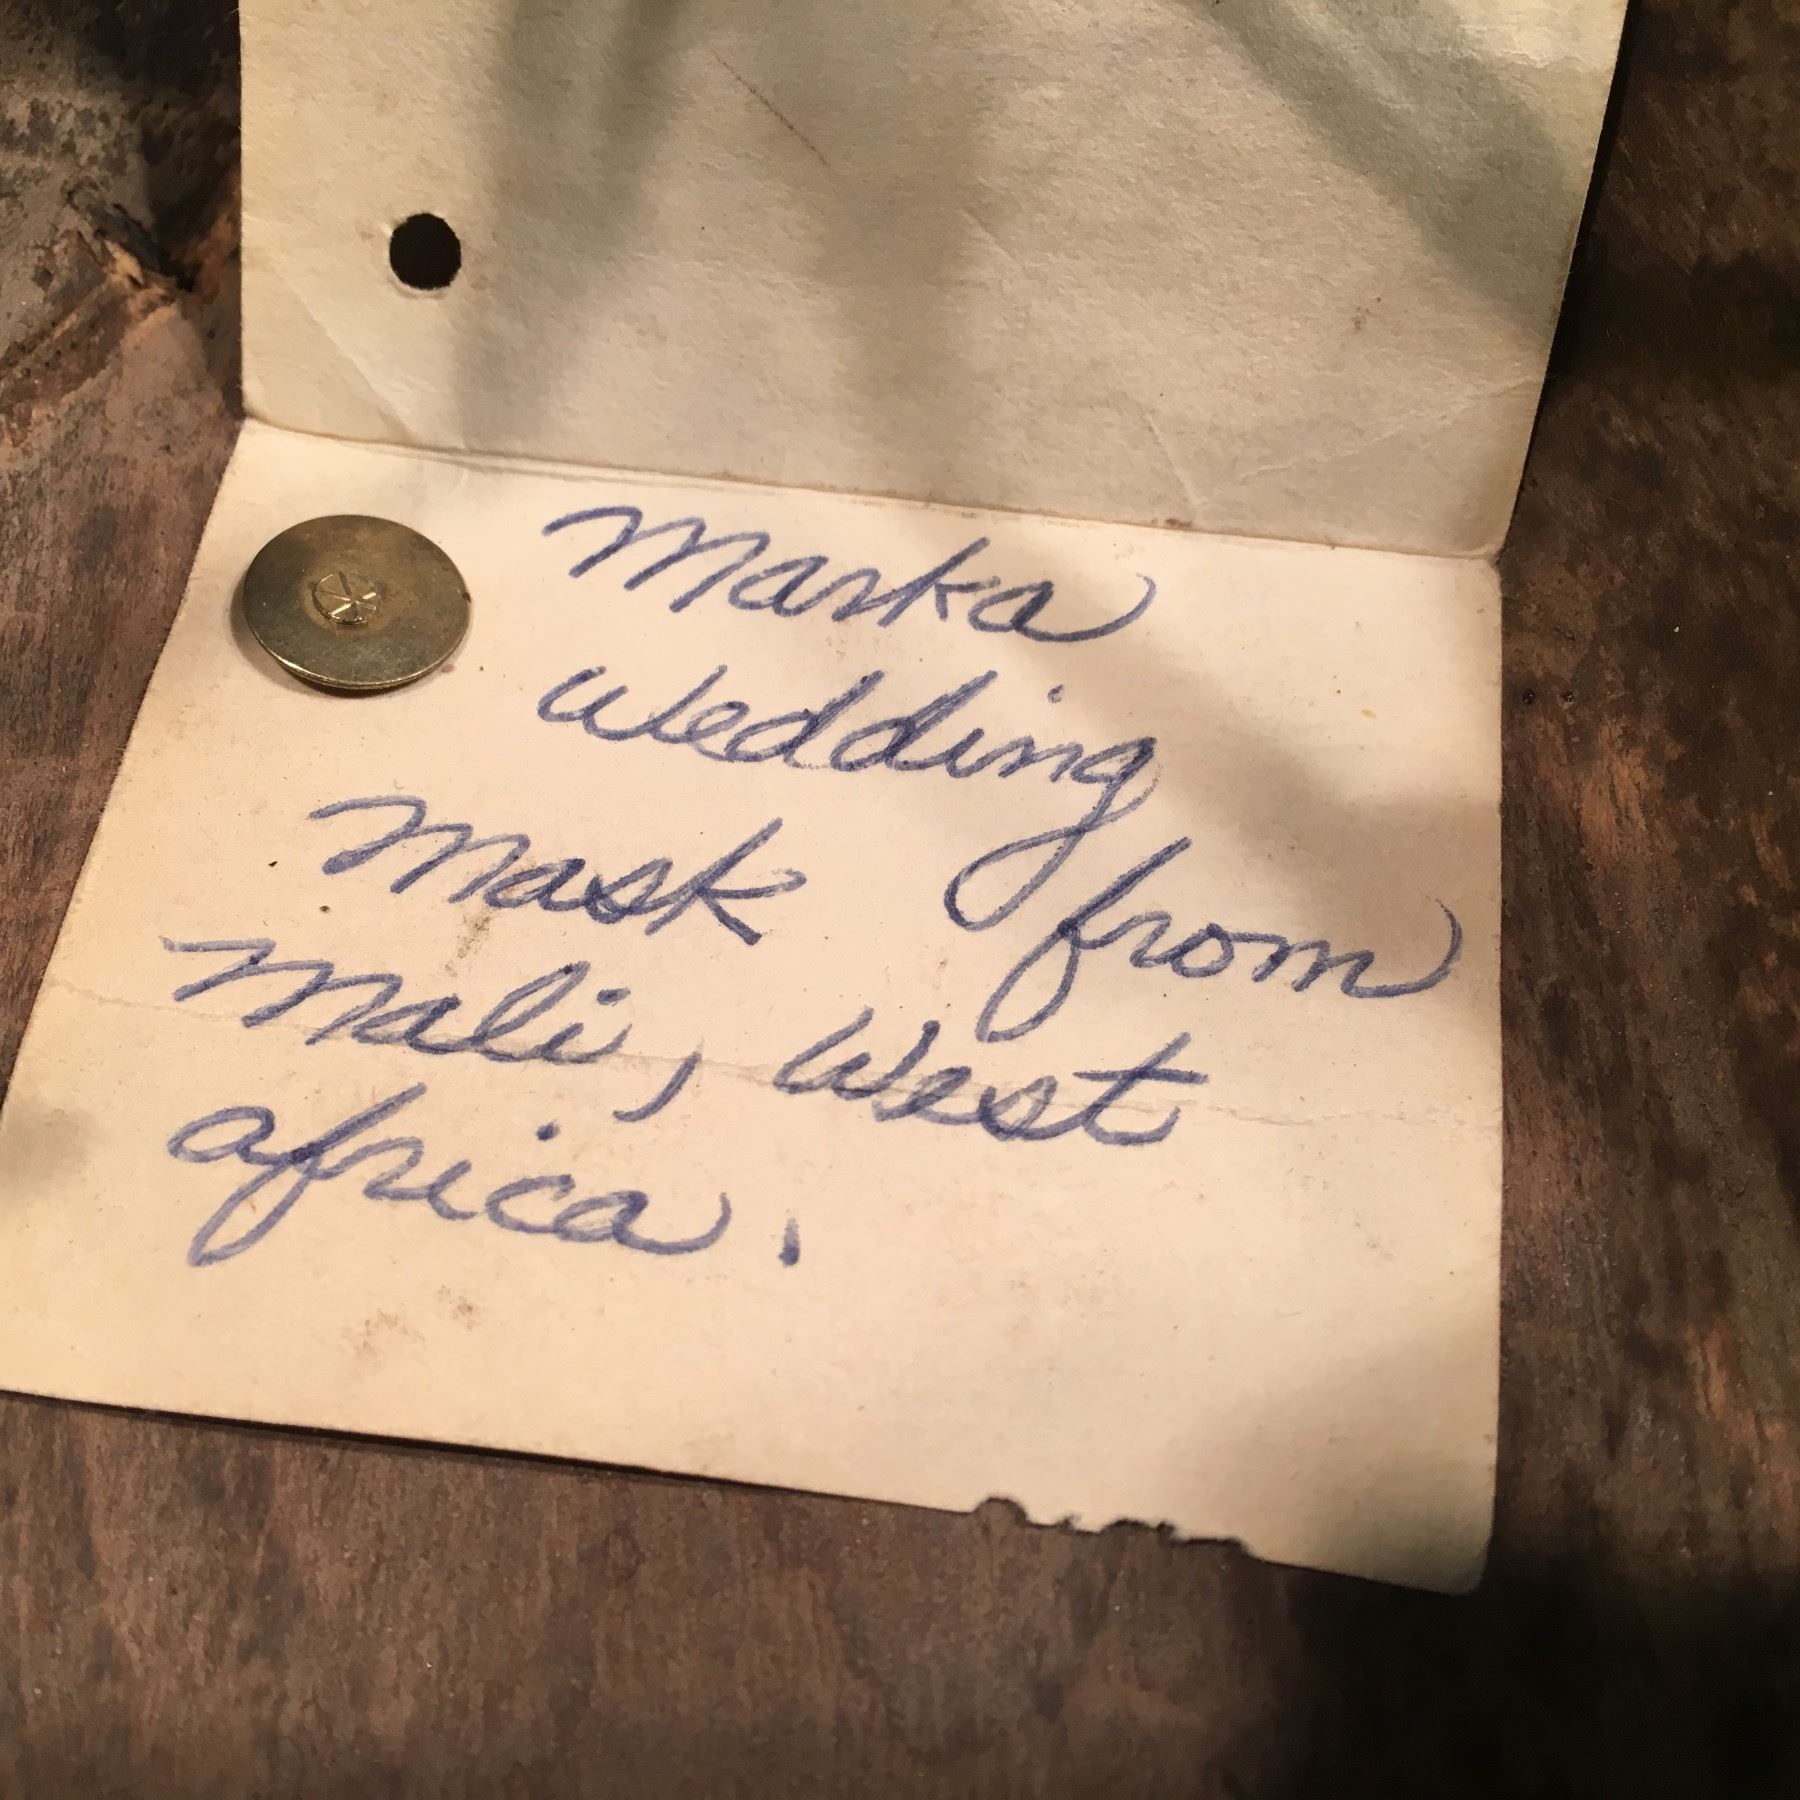 Marka
wedding
Mask from
Mali, West
africa.